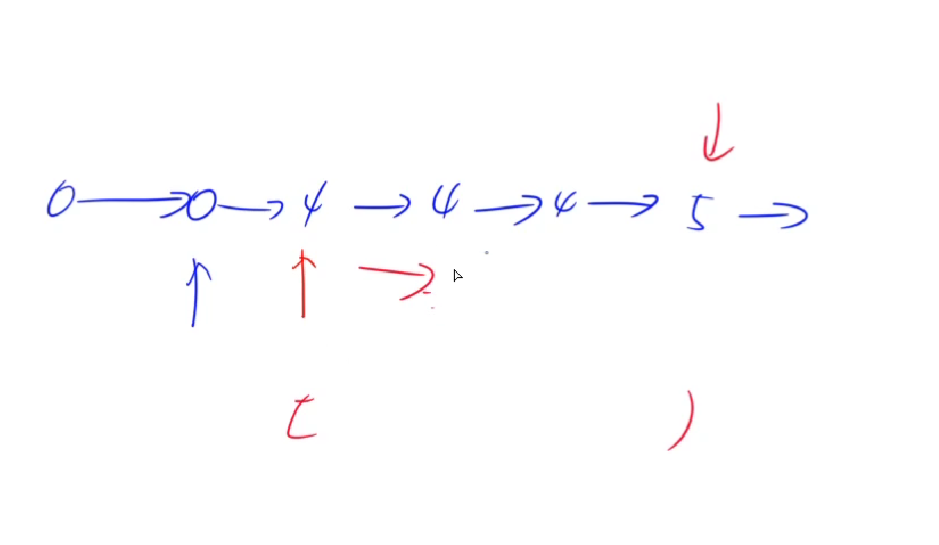 0 → 0 → 4 → 4 → 4 → 5 →
[ )